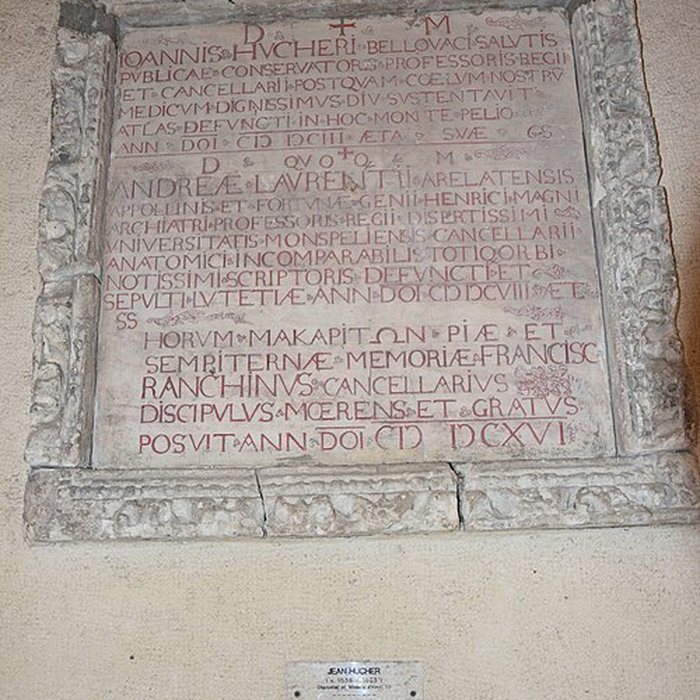 D + M
IOANNIS HVCHERI BELLOVACI SALVTIS
PVBLICAE CONSERVATORS PROFESSORIS REGII
ET CANCELLARII POSTQVAM COELVM NOSTRV
MEDICVM DIGNISSIMVS DIV SVSTENTAVIT
ATLAS DEFVNCTI IN HOC MONTE PELIO
ANN DOI CIƆ IƆCIII ÆTA SVÆ
D QVO+Q M
ANDREÆ LAVRENTII ARELATENSIS
APPOLLINIS ET FORTVNÆ GENII HENRICI MAGNI
ARCHIATRI PROFESSORIS REGII DISERTISSIMI
VNIVERSITATIS MONSPELIENSIS CANCELLARII
ANATOMICI INCOMPARABILIS TOTI ORBI
NOTISSIMI SCRIPTORIS DEFVNCTI ET
SEPVLTI LVTETIÆ ANN DOI CIƆ IƆCVIII ÆT
SS
HORVM MAKAPITΩN PIÆ ET
SEMPITERNÆ MEMORIÆ FRANCISC
RANCHINVS CANCELLARIVS
DISCIPVLVS MŒRENS ET GRATVS
POSVIT ANN DOI CIƆ IƆCXVI
JEAN HUCHER